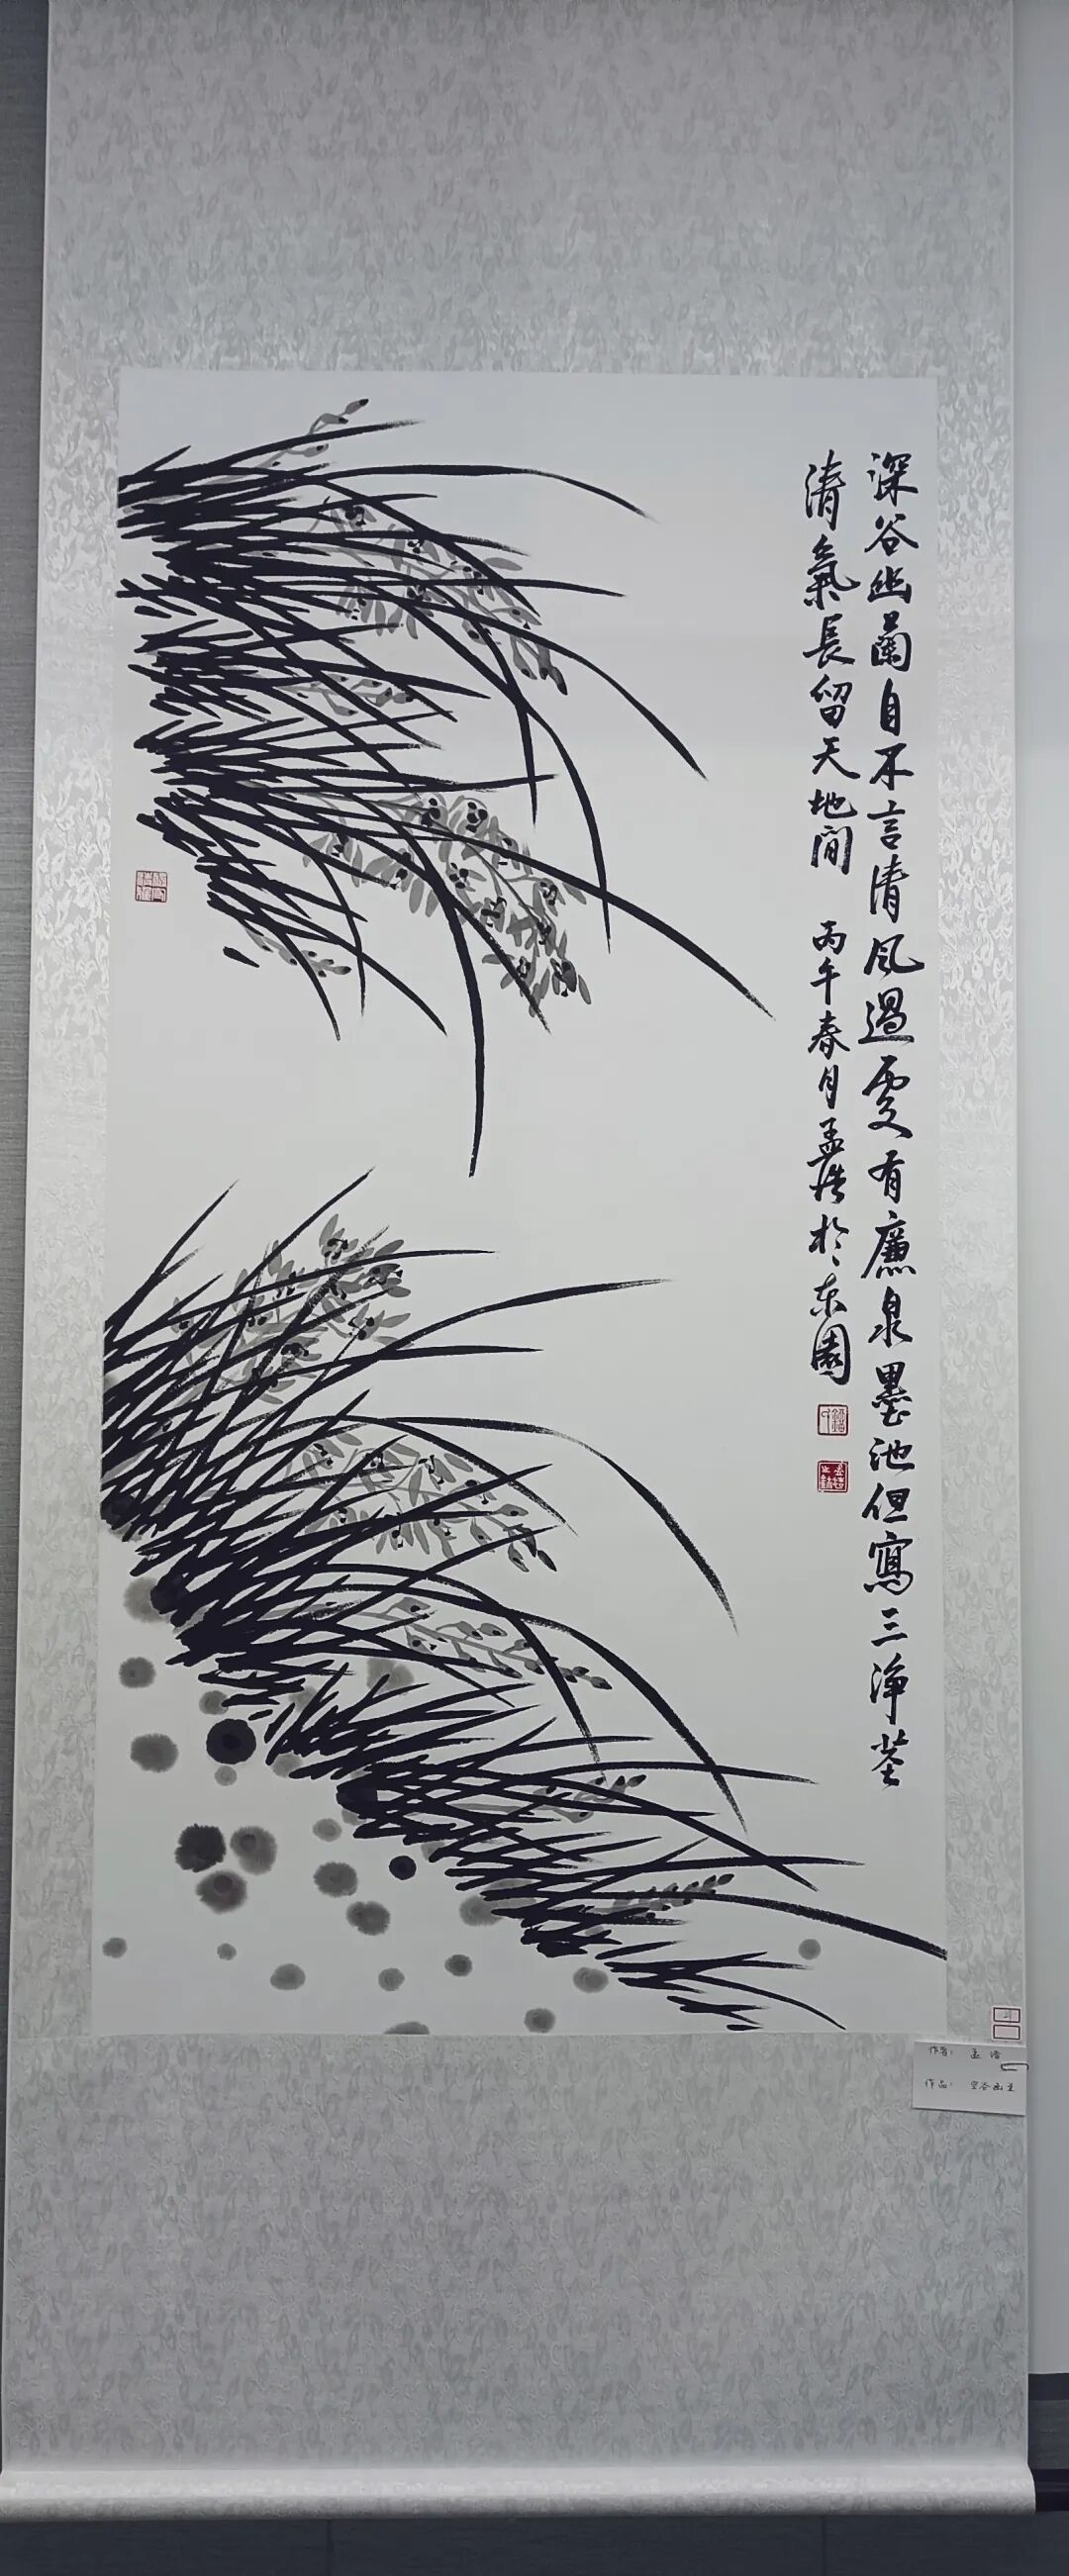 深谷幽蘭自不言清風過處有廉泉墨池但寫三淨莖
清氣長留天地間 丙午春月孟浩於东園
作者： 孟 浩
作品： 空谷幽兰